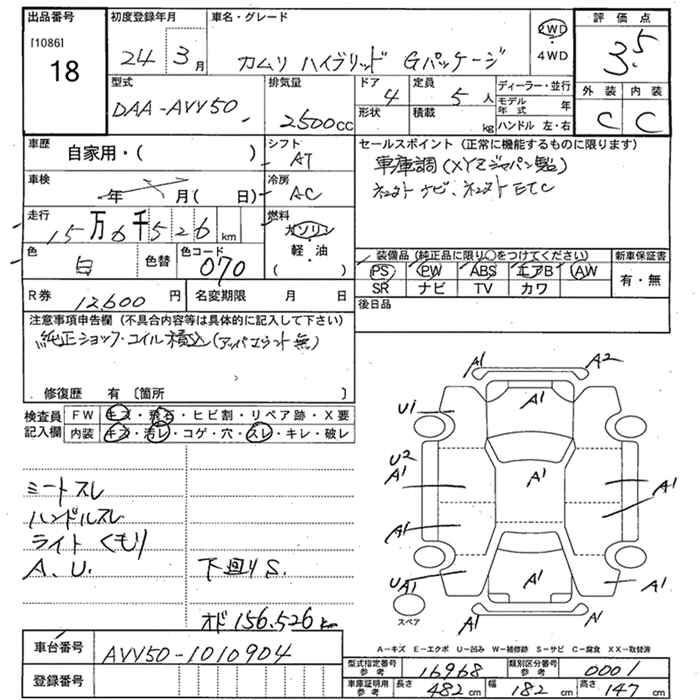 出品番号 初度登録年月 車名・グレード 評価点
[1086]
18 24 3月 カムリ ハイブリッド Gパッケージ 2WD・4WD 3.5
型式 排気量 ドア 定員 ディーラー・並行 外装 内装
DAA-AVV50 2500cc 4 5人 モデル年式 年 C C
形状 積載 kg ハンドル 左・右
車歴 シフト セールスポイント (正常に機能するものに限ります)
自家用・( ) AT 車庫調(XYZジャパン製)
車検 冷房 ネクスト ナビ、ネクスト ETC
年 月( 日) AC
走行 燃料
15万6千526km ガソリン・軽・油( )
色 色替 色コード 装備品(純正品に限り○をつけてください) 新車保証書
白 070 PS PW ABS エアB AW 有・無
SR ナビ TV カワ
R券 12,600円 名変期限 月 日 後日品
注意事項申告欄 (不具合内容等は具体的に記入して下さい)
純正ショック・コイル積込(アッパマウント無)
修復歴 有〔箇所 〕
検査員記入欄 FW キズ・飛石・ヒビ割・リペア跡・X要
内装 キズ・汚レ・コゲ・穴・スレ・キレ・破レ
A1 A2
U1 A1
U2
A1 A1 A1
A1
UA1 A1 A1
スペア A1 A1
シートスレ
ハンドルスレ
ライト くもり
A.U. 下回りS.
オド 156,526km
A-キズ E-エクボ U-凹み W-補修跡 S-サビ C-腐食 XX-取替済
車台番号 AVV50-1010904
型式指定番号参考 16968 類別区分番号参考 0001
登録番号 車庫証明用参考 長さ 482cm 幅 182cm 高さ 147cm